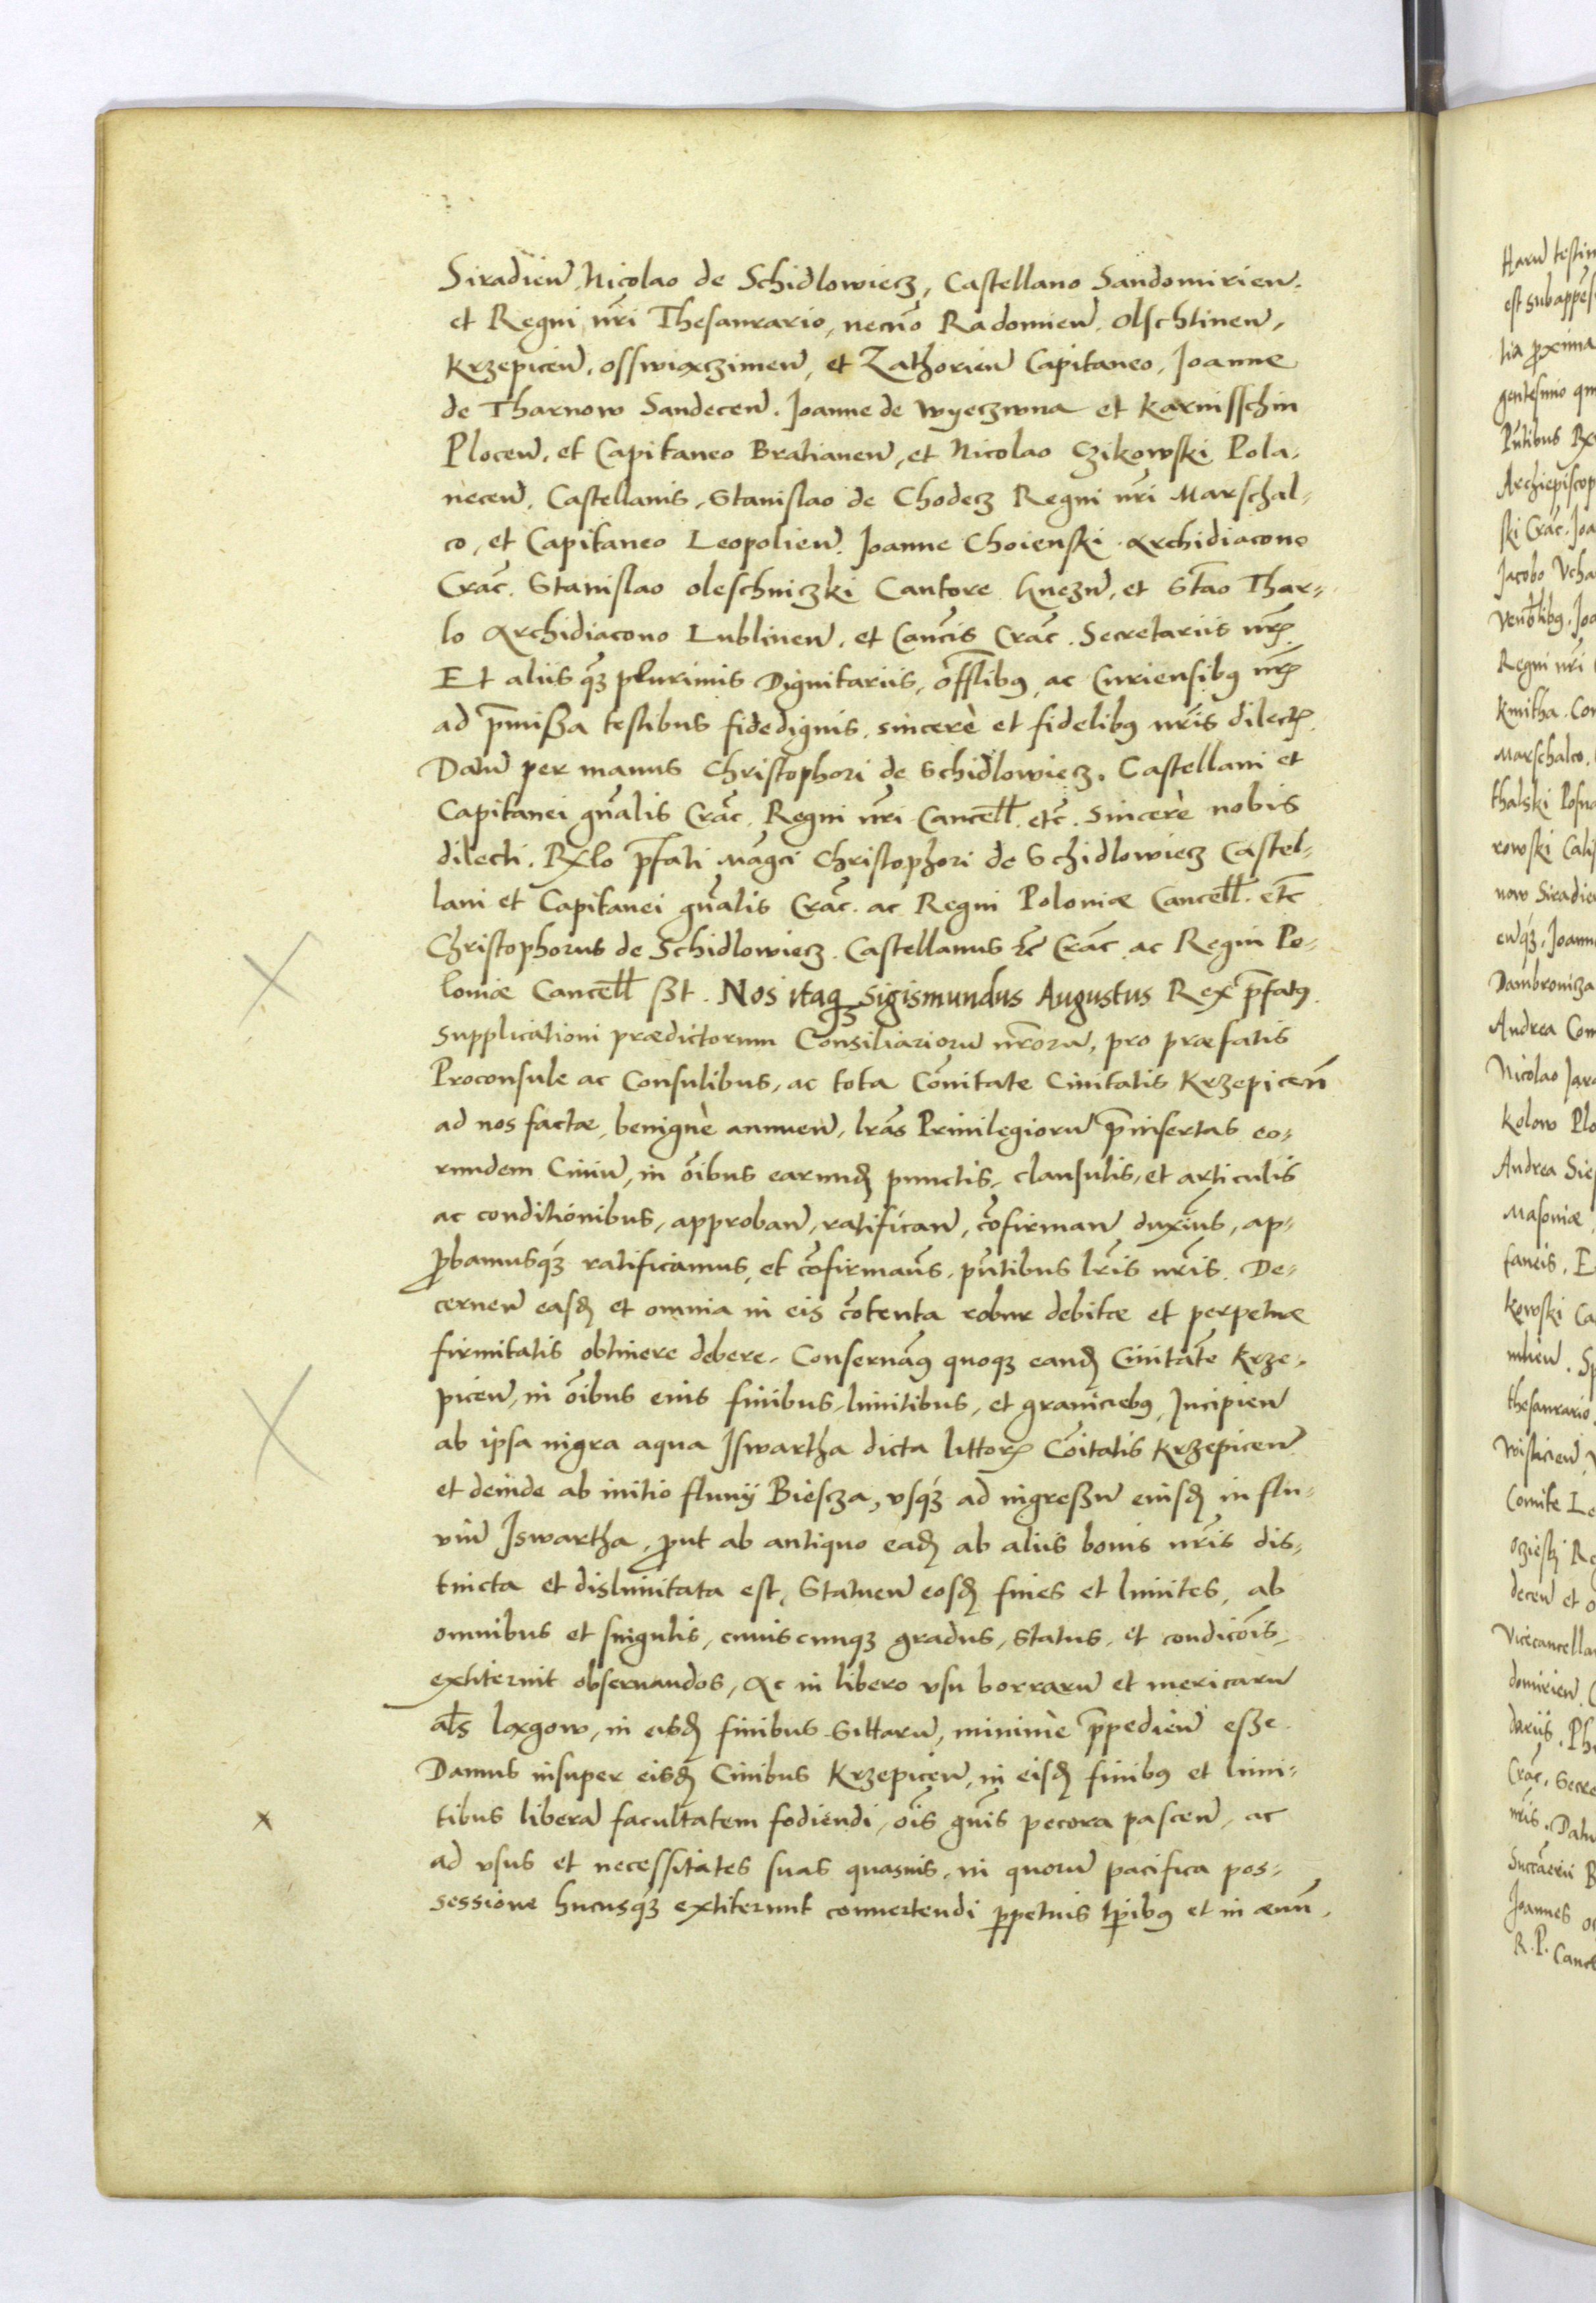 Siradień Nicolao de Schidlowiecz, Castellano Sandomirień.
et Regni nr̃i Thesaurario, necnõ Radomień. Olschtineń,
Krzepiceń, osswiaczimeń, et Zathorień Capitaneo, Joanne
de Tharnow Sandeceń. Joanne de Wyeczwna et Karnisschin
Ploceń, et Capitaneo Bratianeń, et Nicolao Czikowski Pola-
neceń. Castellanis, Stanislao de Chodecz Regni nr̃i Marschal-
co, et Capitaneo Leopolień. Joanne Choienski Archidiacono
Crac̃. Stanislao oleschniczki Cantore Gnezń, et Stão Thar-
lo Archidiacono Lublineń, et Canc̃is Crac̃. Secretariis nr̃ꝝ.
Et aliis qꝫ plurimis Dignitariis, offl̃ibꝰ, ac Curiensibꝰ nr̃ꝝ
ad p̃mißa testibus fidedignis, sincerè et fidelibꝰ nr̃is dilectꝝ.
Datũ per manus Christophori de Schidlowiecz, Castellani et
Capitanei gñalis Crac̃. Regni nr̃i Cancell̃. etc̃. sincerè nobis
dilecti. Rx̃lo p̃fati Mãgci Christophori de Schidlowiecz Castel-
lani et Capitanei gñalis Crac̃. ac Regni Poloniæ Cancell̃. etc̃
Christophorus de Schidlowiecz. Castellanus etc̃ Crac̃. ac Regni Po-
loniæ Cancell̃ ßt. Nos itaqꝫ Sigismundus Augustus Rex p̃fatꝰ.
supplicationi prædictorum Consiliariorũ nr̃orũ, pro præfatis
Proconsule ac Consulibus, ac tota Cõmitate Ciuitatis Krzepiceń
ad nos factæ, benignè annueń, lr̃as Priuilegiorũ p̃insertas eo-
rundem Ciuiũ, in õibus earundẽ punctis, clausulis, et articulis
ac conditionibus, approbań, ratificań, cõfirmań duximꝰ, ap-
ꝓbamusqꝫ ratificamus, et cõfirmamꝰ, pñtibus lr̃is nr̃is. De-
cerneń easdẽ et omnia in eis cõtenta robur debitæ et perpetuæ
firmitatis obtinere debere. Conseruãꝰ quoqꝫ eandẽ Ciuitatẽ Krze-
piceń, in õibus eius finibus, limitibus, et graniciebꝰ, Incipień
ab ipsa nigra aqua Jswartha dicta littorꝝ Cõitatis Krzepiceń
et deinde ab initio fluuij Biescza, vsqꝫ ad ingreßũ eiusdẽ in flu-
uiũ Jswartha, ꝓut ab antiquo eadẽ ab aliis bonis nr̃is dis-
tincta et dislimitata est, Statueń eosdẽ fines et limites, ab
omnibus et singulis, cuiuscunqꝫ gradus, status, et condicõis,
extiterint obseruandos, Ac in libero vsu borrarũ et mericarũ
al̃s laxgow, in eisdẽ finibus sittarũ, minimè p̃pedień eße.
Damus insuper eisdẽ Ciuibus Krzepiceń, in eisdẽ finibꝰ et limi-
tibus liberã facultatem fodiendi, õis gñis pecora pasceń, ac
ad vsus et necessitates suas quasuis, in quorũ pacifica pos-
sessione hucusqꝫ extiterunt conuertendi ꝑpetuis tꝑibꝰ et in æuũ.
Harũ testim
est subappens
tia ꝓxima
gentesimo
Pñtibus
Archiepiscop
ski Crac̃. Joa
Jacobo Vcha
Regni nr̃i
Kmitha. Co
Marschalco.
thalski Posna
rowski Calis
now Siradie
eńqꝫ. Joann
Dambroniza
Andrea Com
Nicolao Jar
Kolow Plo
Andrea Sie
Masouiæ
faneis. E
kowski Ca
thesaurario
Comite Le
deceń et o
Vicecancella
domirień.
dariis. Ph
Crac̃. Secre
nr̃is. Datũ
Joannes oc
R. P. Canc